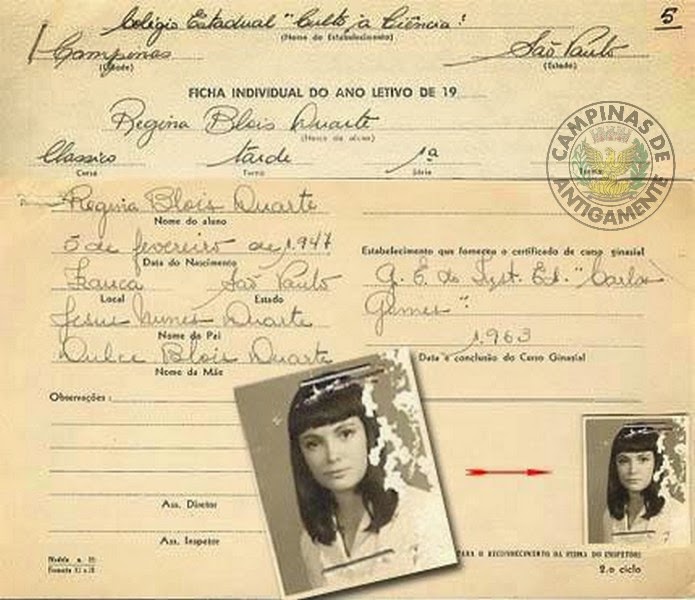 Colégio Estadual "Culto à Ciência"
(Nome do Estabelecimento)
5
Campinas
(Cidade)
São Paulo
(Estado)
FICHA INDIVIDUAL DO ANO LETIVO DE 19
Regina Blois Duarte
(Nome do aluno)
Classico
Curso
tarde
Turno
1ª
Série
Turma
CAMPINAS DE ANTIGAMENTE
Regina Blois Duarte
Nome do aluno
5 de fevereiro de 1947
Data do Nascimento
Estabelecimento que forneceu o certificado de curso ginasial
Franca São Paulo
Local Estado
G. E. do Inst. Ed. "Carlos
Gomes"
Jesus Nunes Duarte
Nome do Pai
1963
Data e conclusão do Curso Ginasial
Dulce Blois Duarte
Nome da Mãe
Observações:
Ass. Diretor
Ass. Inspetor
PARA O RECONHECIMENTO DA FIRMA DO INSPETOR
2.o ciclo
Modelo n.
Formato